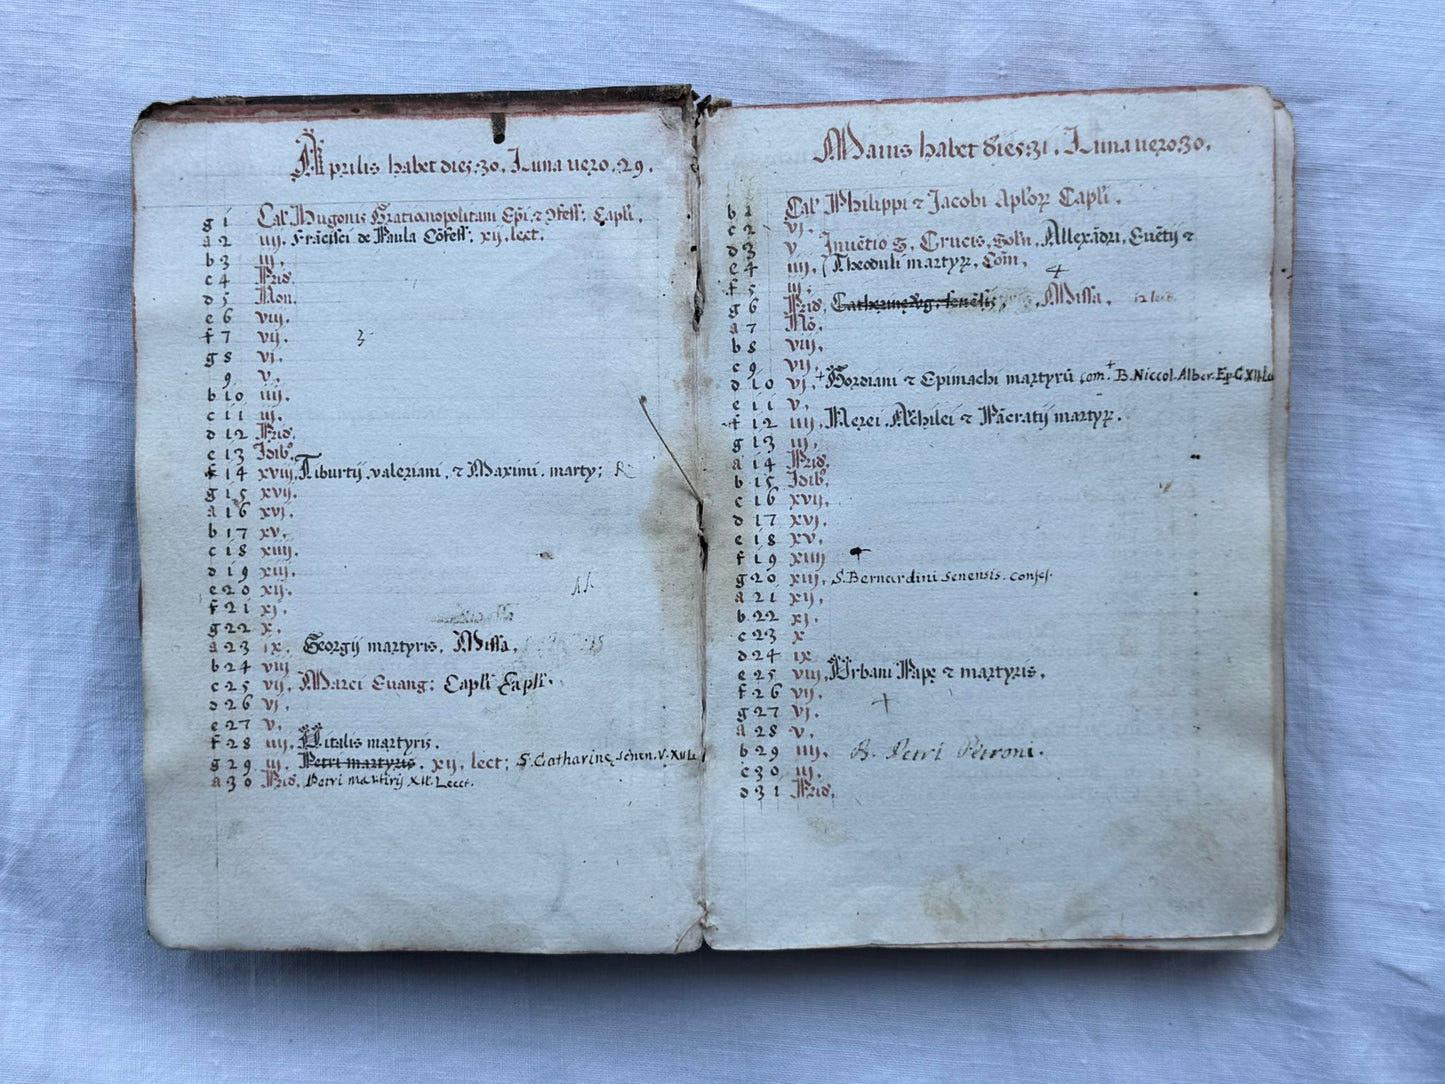 Aprilis habet dies.30. Luna uero.29.
g 1 Cal' Hugonis Gratianopolitani Ep̄i ⁊ ↄfess; Capl'i.
a 2 iiij. Frācisci de Paula Cōfess; xij, lect.
b 3 iij.
c 4 Prid.
d 5 Non.
e 6 viij.
f 7 vij. 3
g 8 vj.
9 v.
b 10 iiij.
c 11 iij.
d 12 Prid.
e 13 Idib9
f 14 xviij. Tiburtij, valeriani, ⁊ Maximi, marty;
g 15 xvij.
a 16 xvj.
b 17 xv.
c 18 xiiij.
d 19 xiij.
e 20 xij.
f 21 xj.
g 22 x.
a 23 ix. Georgij martyris. Missa.
b 24 viij
c 25 vij. Marci Euang; Capl'i Capl'i.
d 26 vj.
e 27 v.
f 28 iiij. Vitalis martyris.
g 29 iij. Petri martyris. xij, lect; S. Catharine, senen. V. XII L
a 30 Prid. Petri martirij XII. Lect.
Maius habet dies.31. Luna uero.30.
b 1 Cal' Philippi ⁊ Jacobi Apl'oꝝ Capl'i.
c 2 vj.
d 3 v. Inuētio S. Crucis, Sol'n. Allexādri, Euētij ⁊
e 4 iiij. (Theoduli martyꝝ, Com̄.
f 5 iij.
g 6 Prid. Catherine vg. senēsis, Missa. 12 lect.
a 7 Nō.
b 8 viij.
c 9 vij.
d 10 vj. +Gordiani ⁊ Epimachi martyrū com. + B. Niccol. Alber. Ep C. XII. Le
e 11 v.
f 12 iiij. Nerei, Achilei ⁊ Pācratij martyꝝ.
g 13 iij.
a 14 Prid.
b 15 Idib9
c 16 xvij.
d 17 xvj.
e 18 xv.
f 19 xiiij
g 20 xiij. S. Bernardini senensis. confes.
a 21 xij.
b 22 xj.
c 23 x
d 24 ix
e 25 viij. Vrbani Papę ⁊ martyris.
f 26 vij.
g 27 vj.
a 28 v.
b 29 iiij. B. Petri Petroni.
c 30 iij.
d 31 Prid.